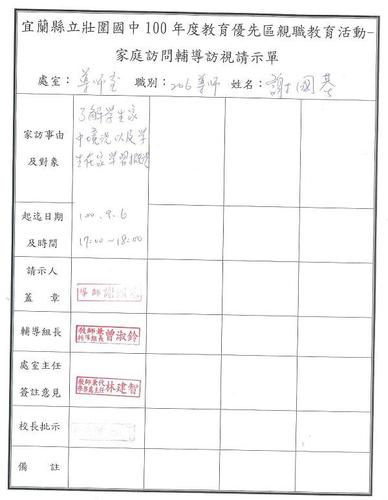 宜蘭縣立壯圍國中100年度教育優先區親職教育活動-
家庭訪問輔導訪視請示單
處室：導師室 職別：206導師 姓名：謝國基
家訪事由
及對象
了解學生家
中境況以及學
生在家學習狀況
起迄日期
及時間
100.9.6
17:00-18:00
請示人
蓋章
導師
輔導組長
教師兼
組長
曾淑鈴
處室主任
簽註意見
教師兼代
主任
林建智
校長批示
備註